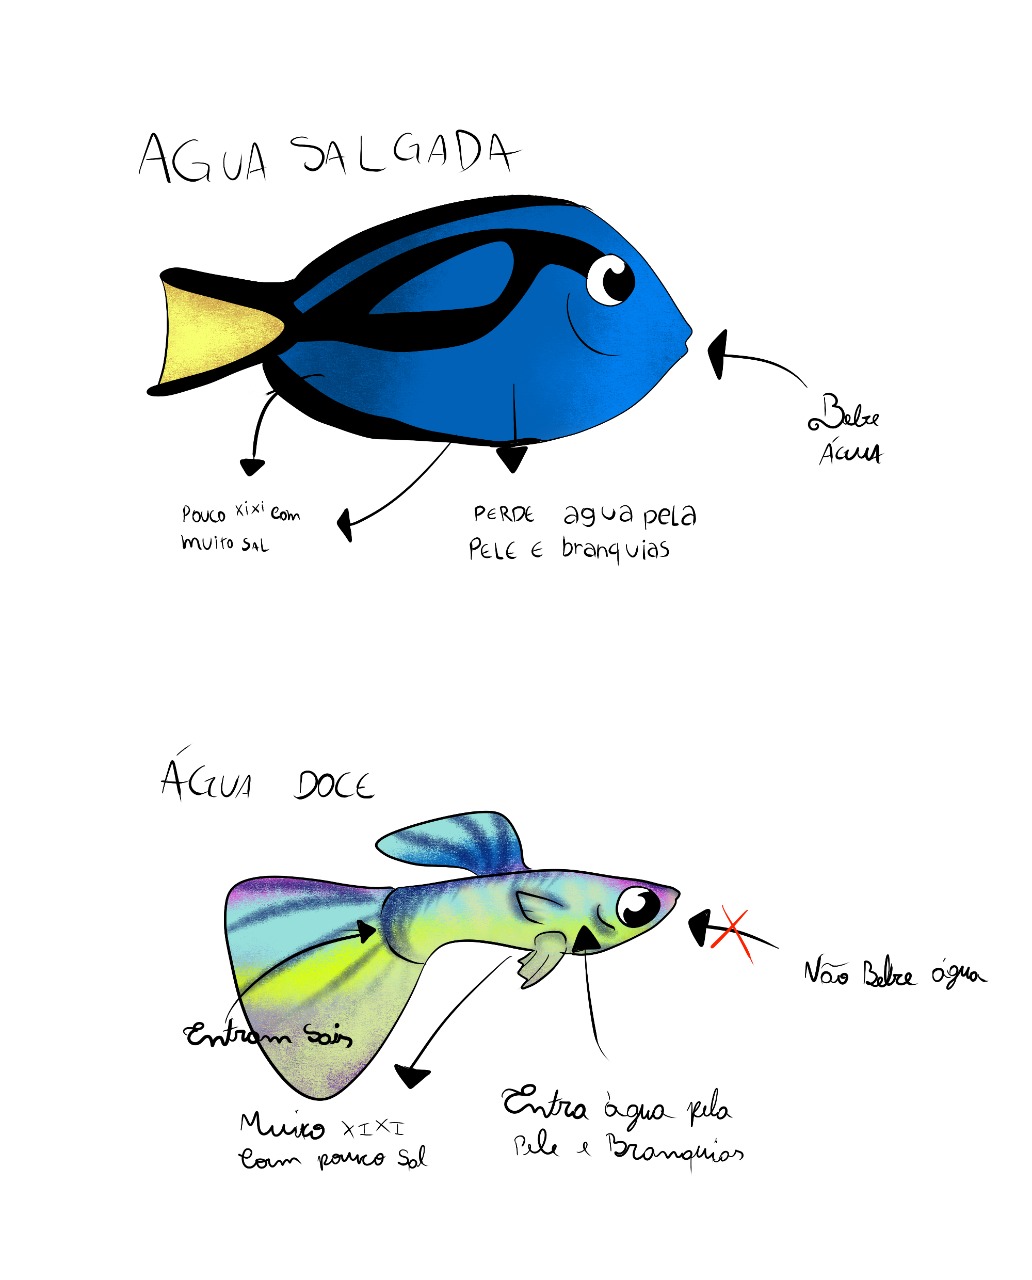 AGUA SALGADA
Bebe
ÁGUA
Pouco xixi com
muito sal
PERDE agua pela
PELE E branquias
ÁGUA DOCE
Não Bebe água
Entram Sais
Muito XIXI
Com pouco Sal
Entra àgua pela
Pele e Branquias